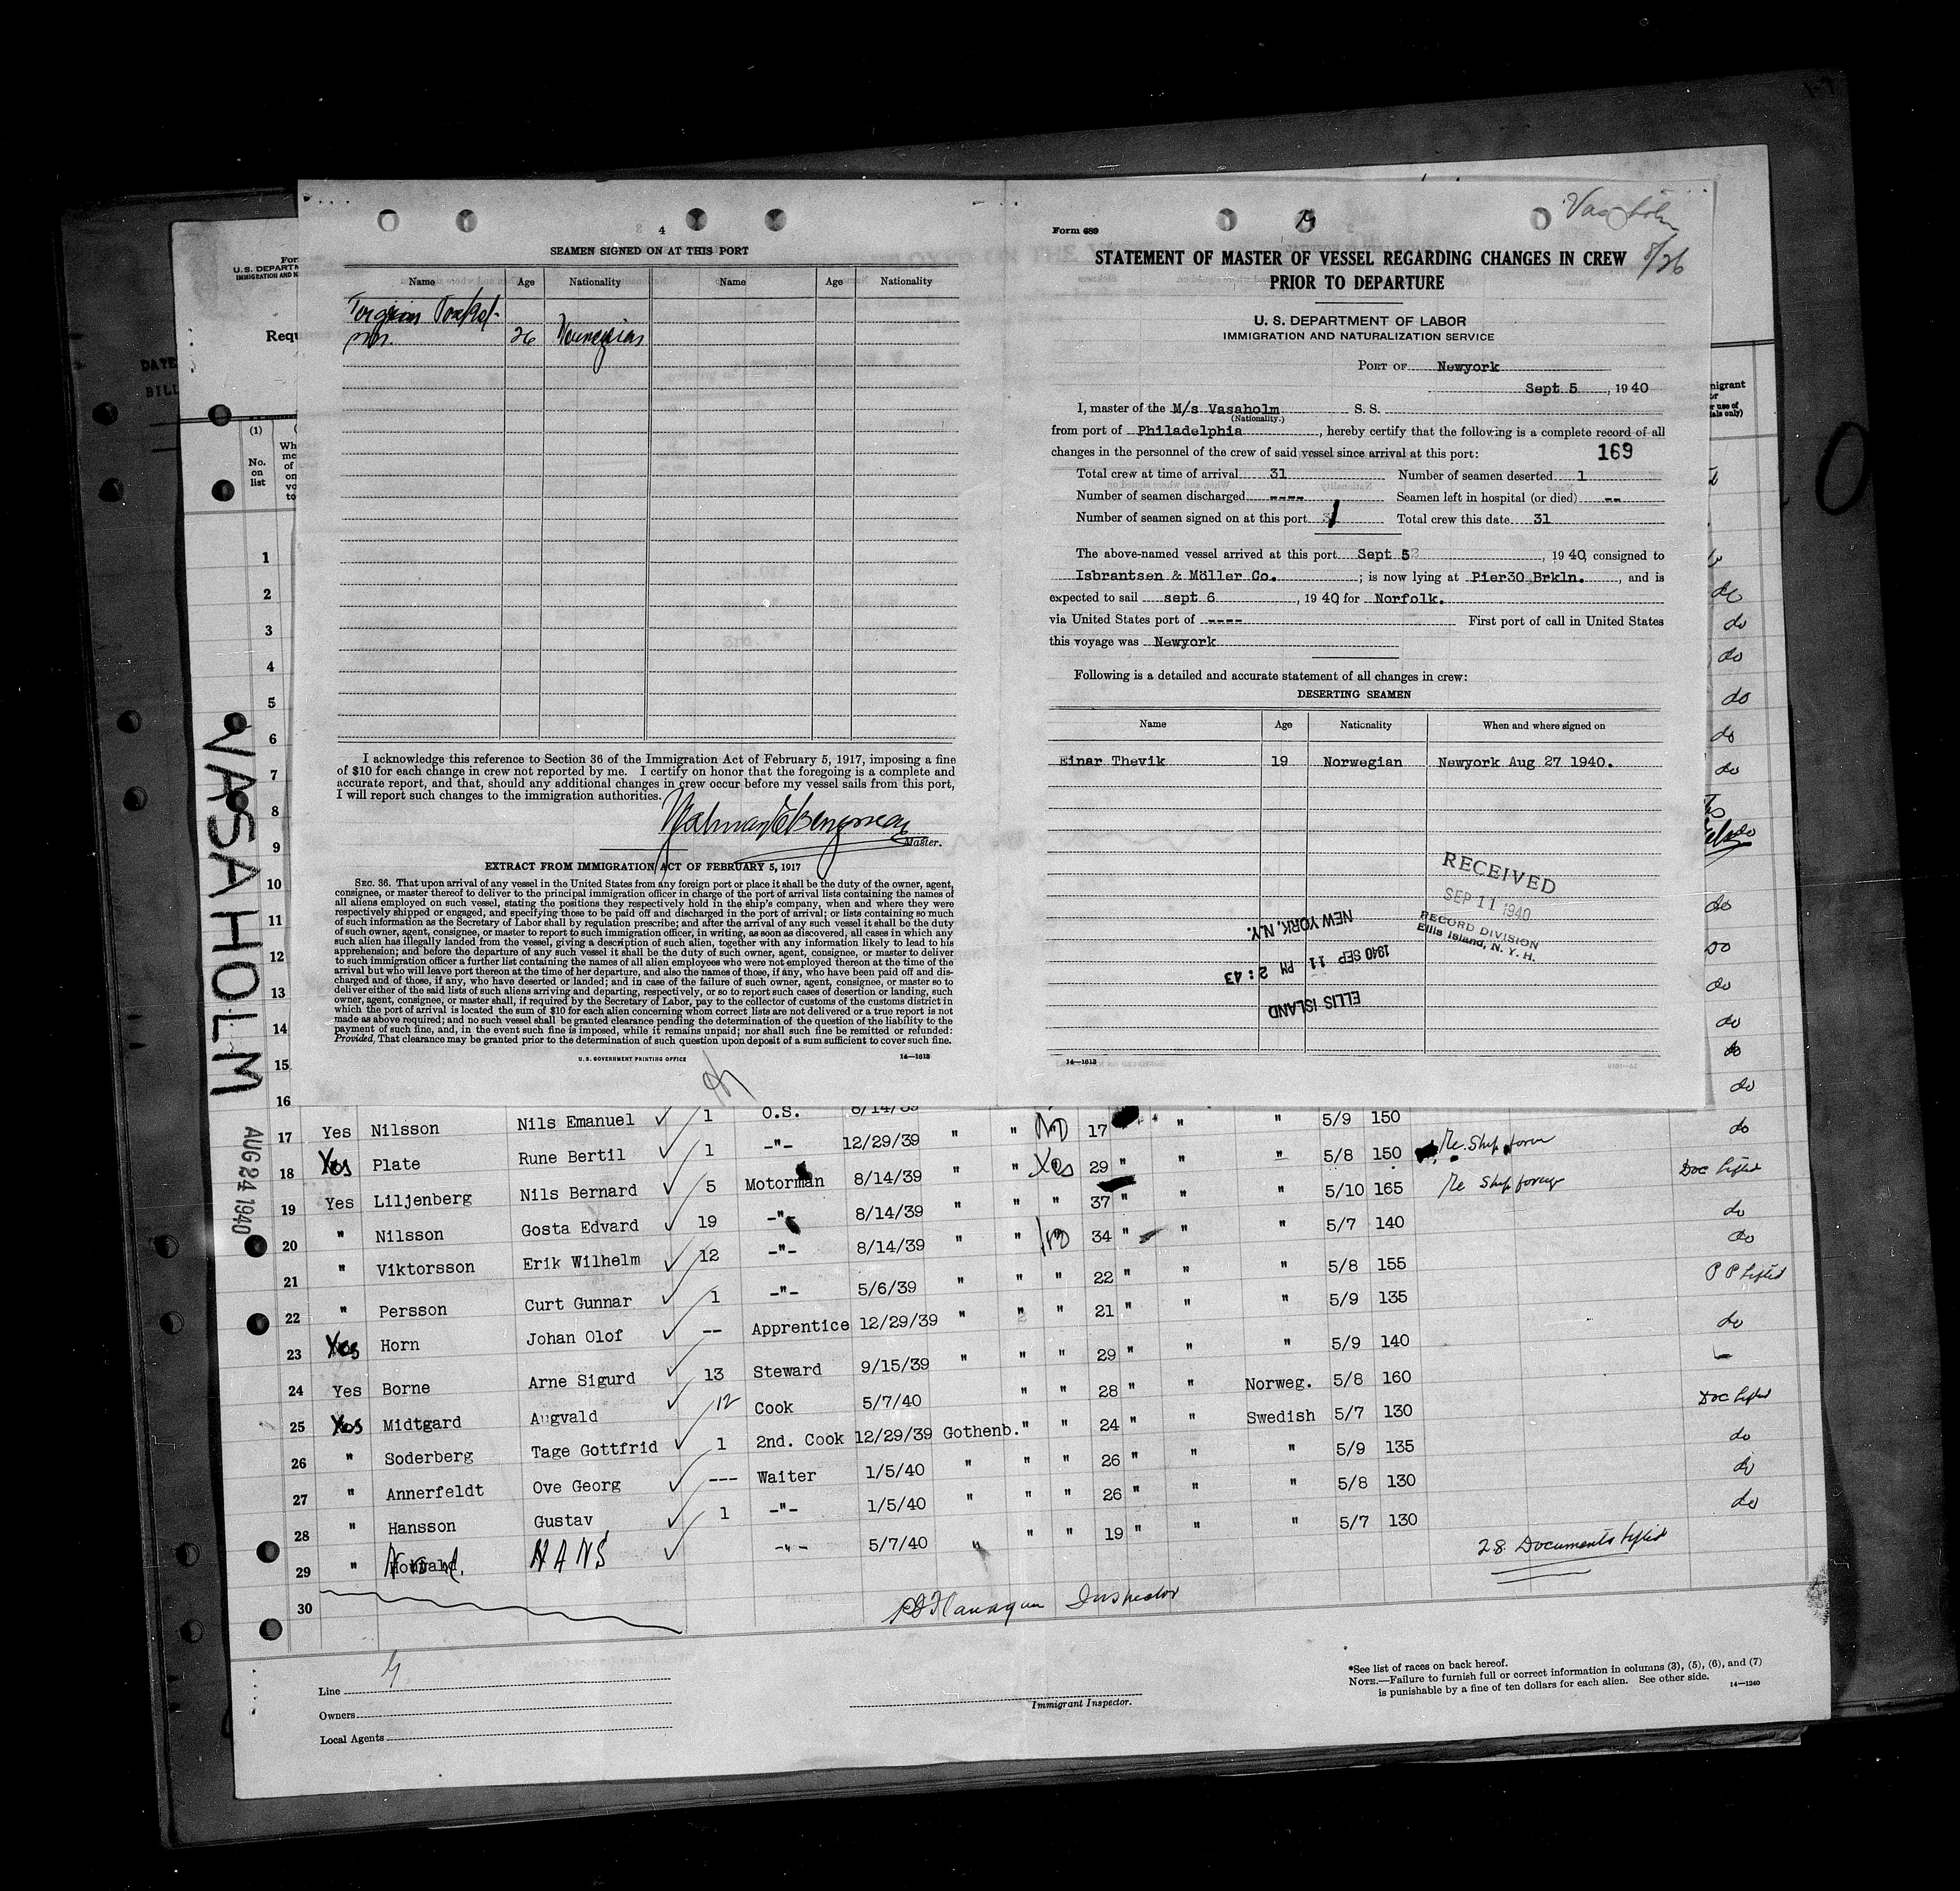 4
SEAMEN SIGNED ON AT THIS PORT
Name Age Nationality Name Age Nationality
26 Norwegian
I acknowledge this reference to Section 36 of the Immigration Act of February 5, 1917, imposing a fine
of $10 for each change in crew not reported by me. I certify on honor that the foregoing is a complete and
accurate report, and that, should any additional changes in crew occur before my vessel sails from this port,
I will report such changes to the immigration authorities.
Master.
EXTRACT FROM IMMIGRATION ACT OF FEBRUARY 5, 1917
SEC. 36. That upon arrival of any vessel in the United States from any foreign port or place it shall be the duty of the owner, agent,
consignee, or master thereof to deliver to the principal immigration officer in charge of the port of arrival lists containing the names of
all aliens employed on such vessel, stating the positions they respectively hold in the ship's company, when and where they were
respectively shipped or engaged, and specifying those to be paid off and discharged in the port of arrival; or lists containing so much
of such information as the Secretary of Labor shall by regulation prescribe; and after the arrival of any such vessel it shall be the duty
of such owner, agent, consignee, or master to report to such immigration officer, in writing, as soon as discovered, all cases in which any
such alien has illegally landed from the vessel, giving a description of such alien, together with any information likely to lead to his
apprehension; and before the departure of any such vessel it shall be the duty of such owner, agent, consignee, or master to deliver
to such immigration officer a further list containing the names of all alien employees who were not employed thereon at the time of the
arrival but who will leave port thereon at the time of her departure, and also the names of those, if any, who have been paid off and dis-
charged and of those, if any, who have deserted or landed; and in case of the failure of such owner, agent, consignee, or master so to
deliver either of the said lists of such aliens arriving and departing, respectively, or so to report such cases of desertion or landing, such
owner, agent, consignee, or master shall, if required by the Secretary of Labor, pay to the collector of customs of the customs district in
which the port of arrival is located the sum of $10 for each alien concerning whom correct lists are not delivered or a true report is not
made as above required; and no such vessel shall be granted clearance pending the determination of the question of the liability to the
payment of such fine, and, in the event such fine is imposed, while it remains unpaid; nor shall such fine be remitted or refunded:
Provided, That clearance may be granted prior to the determination of such question upon deposit of a sum sufficient to cover such fine.
U. S. GOVERNMENT PRINTING OFFICE 14—1613
Form 689
Vasaholm
8/26
STATEMENT OF MASTER OF VESSEL REGARDING CHANGES IN CREW
PRIOR TO DEPARTURE
U. S. DEPARTMENT OF LABOR
IMMIGRATION AND NATURALIZATION SERVICE
PORT OF Newyork
Sept 5, 1940
I, master of the M/s Vasaholm S. S.
(Nationality.)
from port of Philadelphia, hereby certify that the following is a complete record of all
changes in the personnel of the crew of said vessel since arrival at this port:
169
Total crew at time of arrival 31 Number of seamen deserted 1
Number of seamen discharged ---- Seamen left in hospital (or died) --
Number of seamen signed on at this port 1 Total crew this date 31
The above-named vessel arrived at this port Sept 5, 1940, consigned to
Isbrantsen & Möller Co.; is now lying at Pier30 Brkln., and is
expected to sail sept 6, 1940 for Norfolk.
via United States port of ---- First port of call in United States
this voyage was Newyork
Following is a detailed and accurate statement of all changes in crew:
DESERTING SEAMEN
Name Age Nationality When and where signed on
Einar Thevik 19 Norwegian Newyork Aug 27 1940.
RECEIVED
SEP 11 1940
RECORD DIVISION
Ellis Island, N. Y. H.
ELLIS ISLAND
1940 SEP 11 PM 2:43
NEW YORK, N.Y.
14—1613
U. S. DEPARTM
IMMIGRATION AND N
Requ
(1)
No.
on
list
VASAHOLM
AUG 24 1940
1
2
3
4
5
6
7
8
9
10
11
12
13
14
15
16
17 Yes Nilsson Nils Emanuel 1 O.S. 8/14/39
18 Yes Plate Rune Bertil 1 -"- 12/29/39 " " No 17 " " 5/9 150
19 Yes Liljenberg Nils Bernard 5 Motorman 8/14/39 " " Yes 29 " " " 5/8 150 Re Ship foreign
20 " Nilsson Gosta Edvard 19 -"- 8/14/39 " " " 37 " " " 5/10 165 Re Ship foreign Doc lifted
21 " Viktorsson Erik Wilhelm 12 -"- 8/14/39 " " No 34 " " " 5/7 140 do
22 " Persson Curt Gunnar 1 -"- 5/6/39 " " " 22 " " " 5/8 155 do
23 Yes Horn Johan Olof -- Apprentice 12/29/39 " " " 21 " " " 5/9 135 P P lifted
24 Yes Borne Arne Sigurd 13 Steward 9/15/39 " " " 29 " " " 5/9 140 do
25 Yes Midtgard Augvald 12 Cook 5/7/40 " " 28 " " Norweg. 5/8 160
26 " Soderberg Tage Gottfrid 1 2nd. Cook 12/29/39 Gothenb. " " 24 " " Swedish 5/7 130 Doc lifted
27 " Annerfeldt Ove Georg --- Waiter 1/5/40 " " " 26 " " " 5/9 135 do
28 " Hansson Gustav 1 -"- 1/5/40 " " " 26 " " " 5/8 130 do
29 " HANS -"- 5/7/40 " " " 19 " " " 5/7 130 do
30
28 Documents lifted
Inspector
Line
Owners
Local Agents
Immigrant Inspector.
*See list of races on back hereof.
NOTE.—Failure to furnish full or correct information in columns (3), (5), (6), and (7)
is punishable by a fine of ten dollars for each alien. See other side.
14—1240